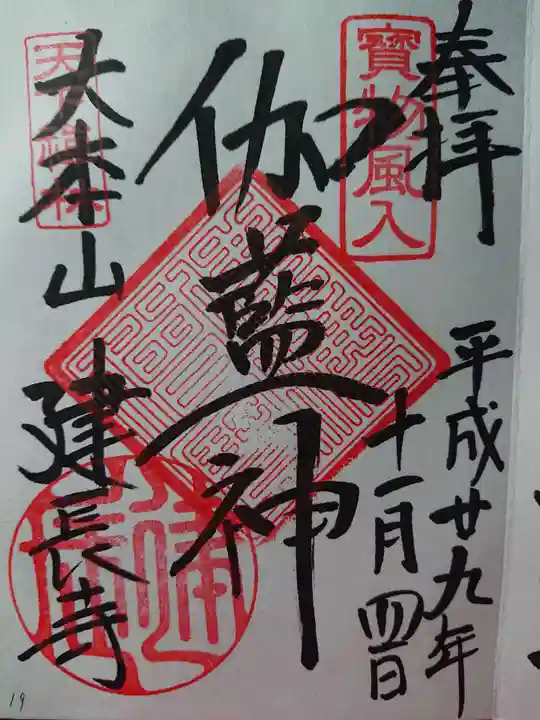 奉拝
寶物風入
平成廿九年
十一月四日
伽藍神
大本山 建長寺
19